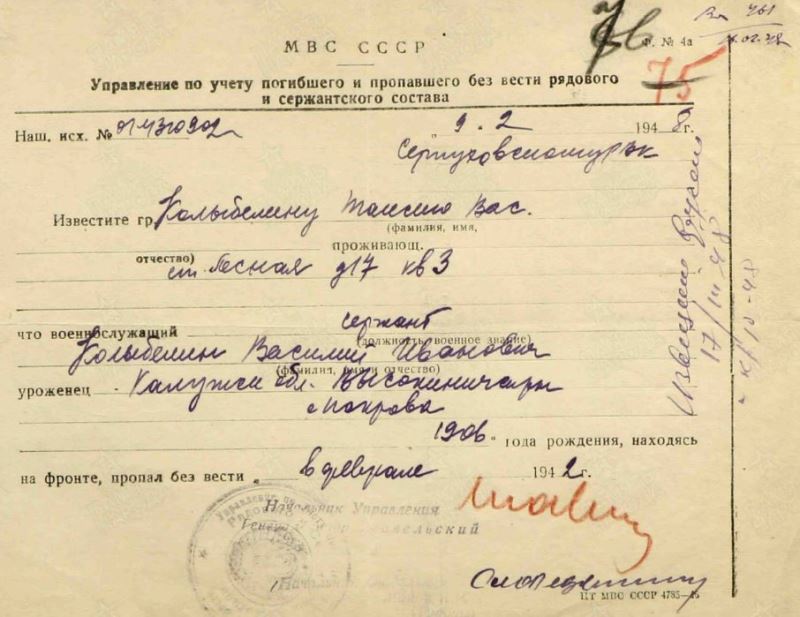 76
Вх 761
Ф. № 4а
75
МВС СССР
Управление по учету погибшего и пропавшего без вести рядового
и сержантского состава
Наш. исх. №
„ 9. 2 1948г.
Серпуховскому рвк
Известите гр. Колыбелину Таисию Вас.
(фамилия, имя,
отчество)
проживающ.
ст. Лесная д17 кв 3
что военнослужащий сержант
(должность, военное звание)
Колыбелин Василий Иванович
(фамилия, имя и отчество)
уроженец Калужск обл. Высокиничск рн
с Покрова
1906 года рождения, находясь
на фронте, пропал без вести „ в феврале 1942г.
Начальник Управления
Извещение
17/III-48
ЦТ МВС СССР 4785-46